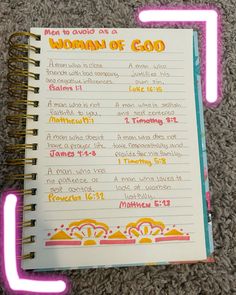 Men to avoid as a
WOMAN OF GOD
A man who is close
friends with bad company
and negative influences
Psalms 1:1
A man who
justifies his
own sin.
Luke 16:15
A man who is not
faithful to you,
Matthew 15:1
A man who is selfish
and self centered
2 Timothy 3:2
A man who doesnt
have a prayer life
James 4:1-8
A man who does not
take responsibility and
provide for his family.
1 Timothy 5:8
A man who has
no patience or
self control.
Proverbs 16:32
A man who loves to
look at women
lustfully.
Matthew 5:28